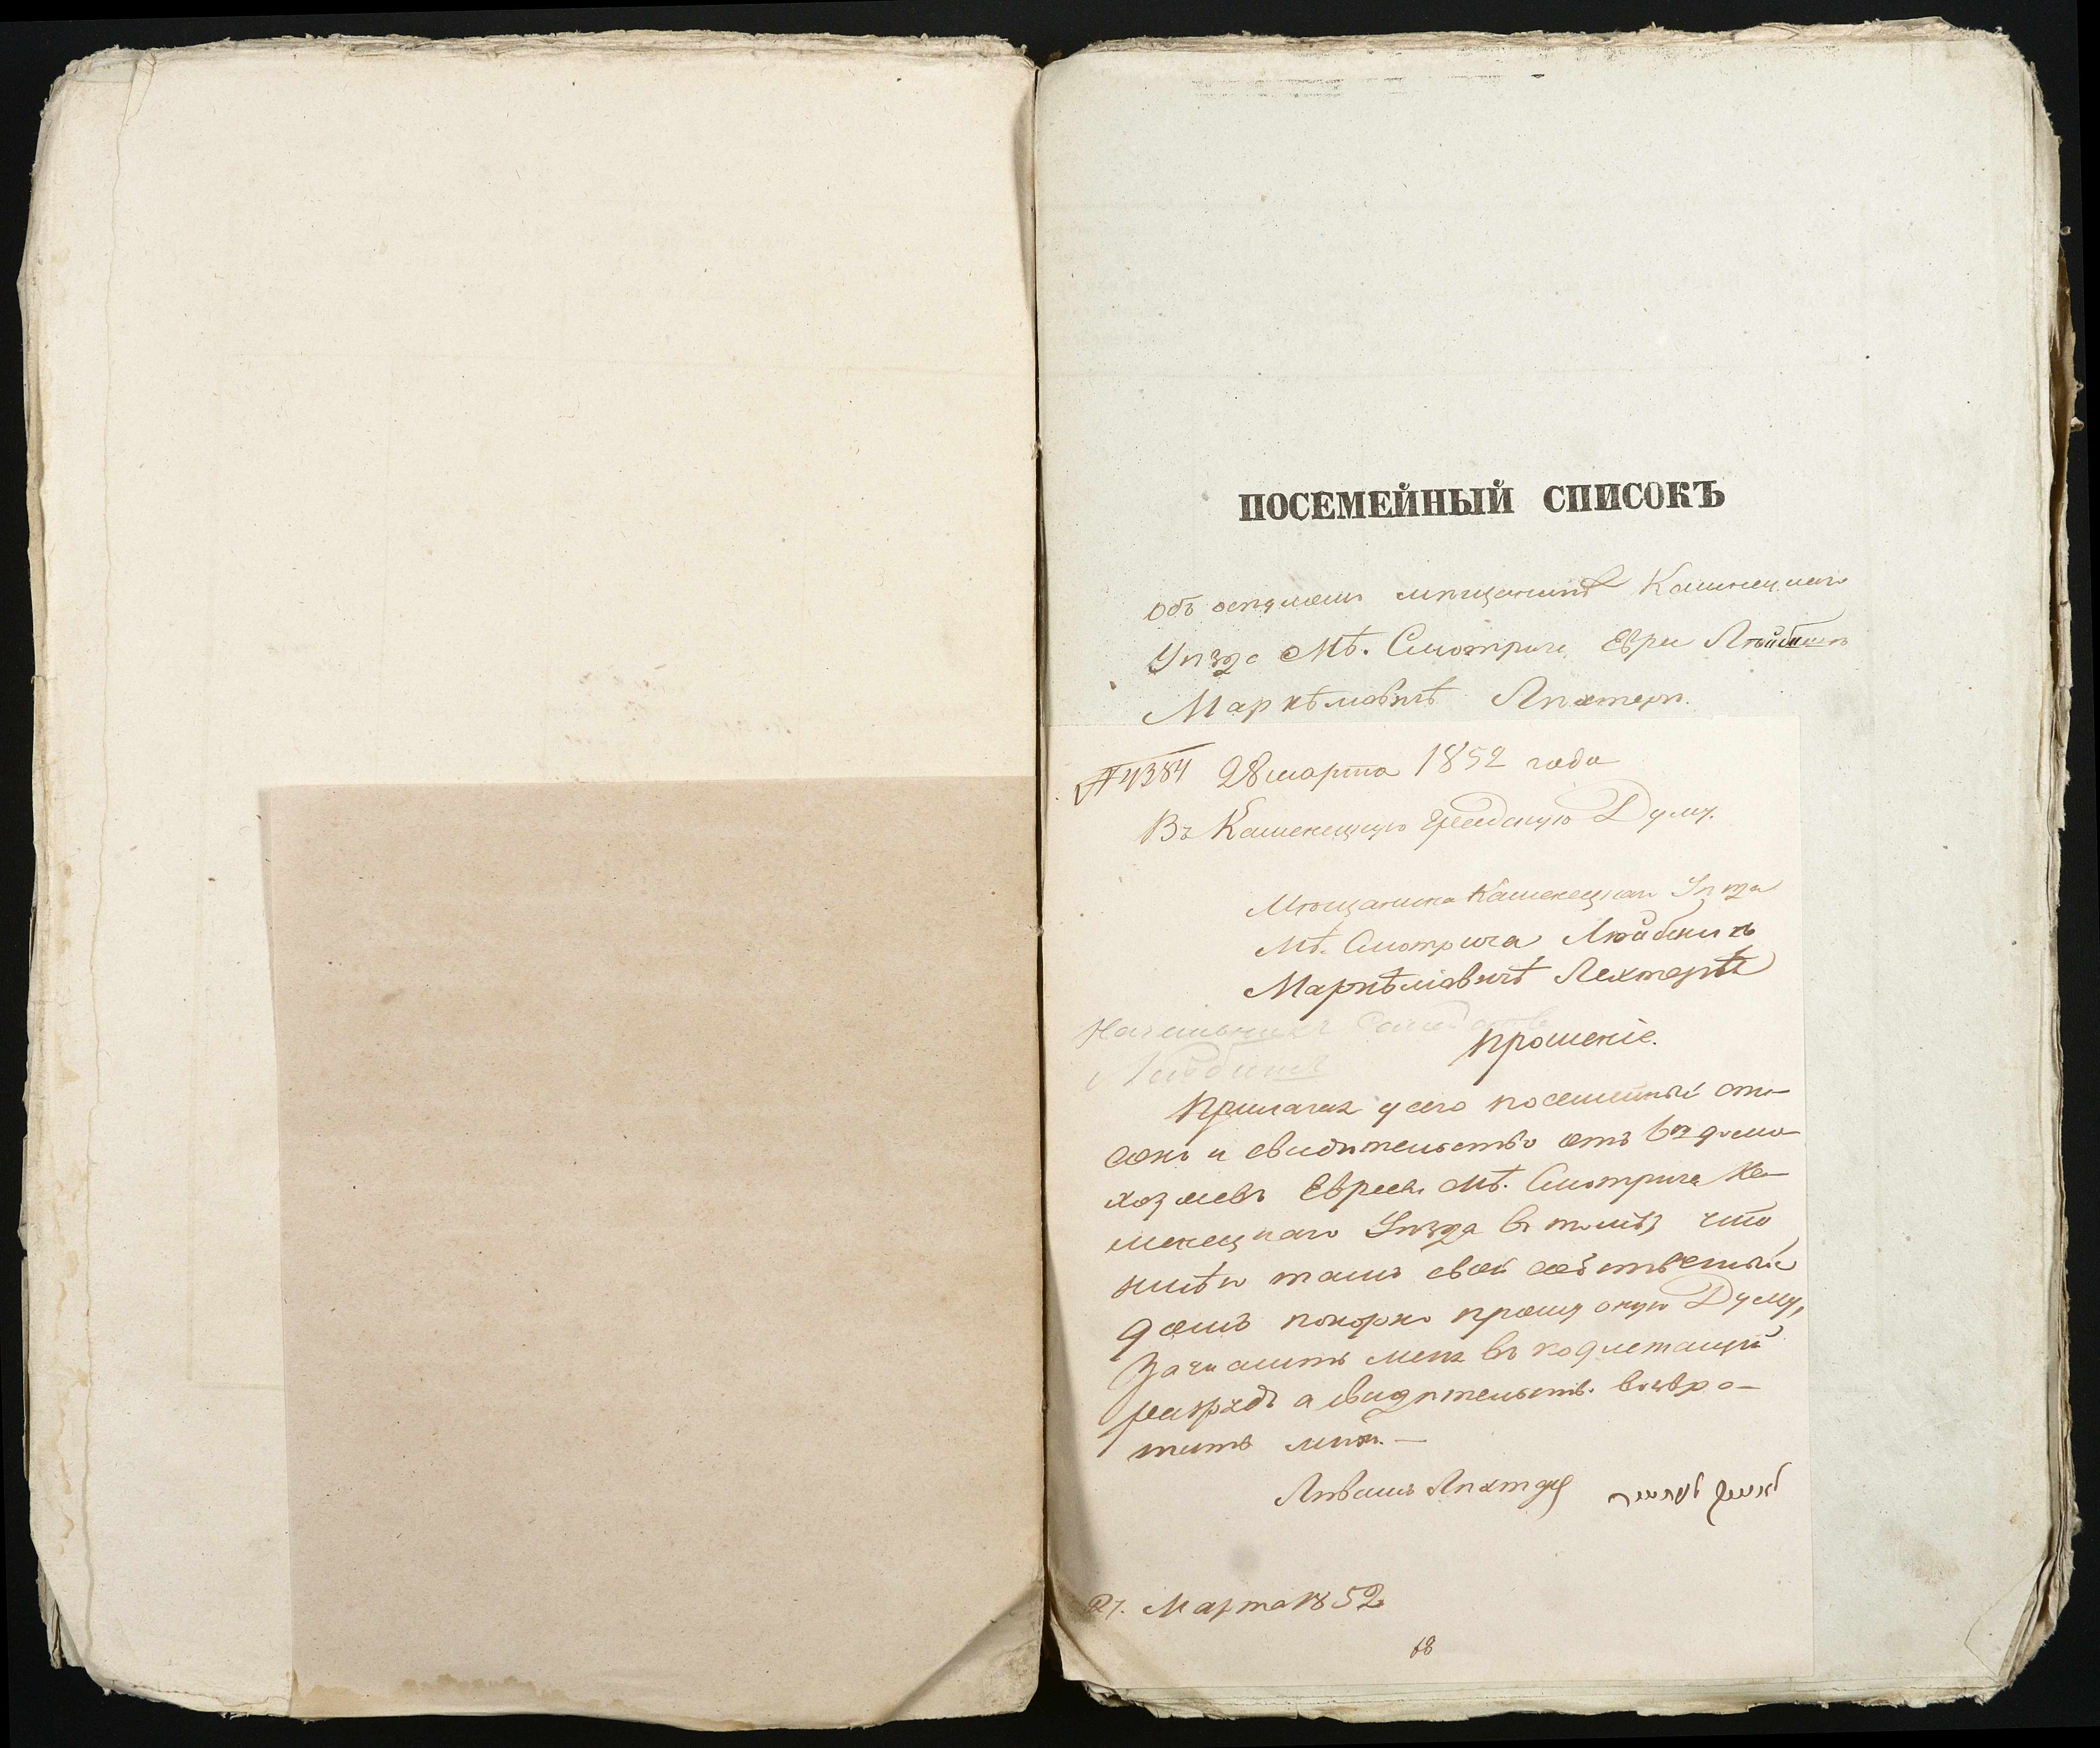 ПОСЕМЕЙНЫЙ СПИСОКЪ
Объ осѣдломъ мѣщанинѣ Каменецкаго
Уѣзда Мѣ. Смотрича Евреи Лейбишъ
Маркѣмовичѣ Лѣхтеръ.
№ 4384 28 марта 1852 года
Въ Каменецкую Градскую Думу.
Мѣщанина Каменецкаго Уѣзда
Мѣ. Смотрича Лейбишъ
Маркѣмовичѣ Лехтерѣ
Прошеніе.
Прилагая у сего посемейный спи-
сокъ и свидѣтельство отъ 6ти домо-
хозяевъ Евреевъ Мѣ. Смотрича Ка-
менецкаго Уѣзда въ томъ, что
имѣю тамъ свой собственный
домъ покорно прошу оную Думу,
зачислить меня въ подлежащій
разрядъ а свидѣтельств. возвра-
тить мнѣ. —
Лейбишъ Лѣхтер
27. Марта 1852
68